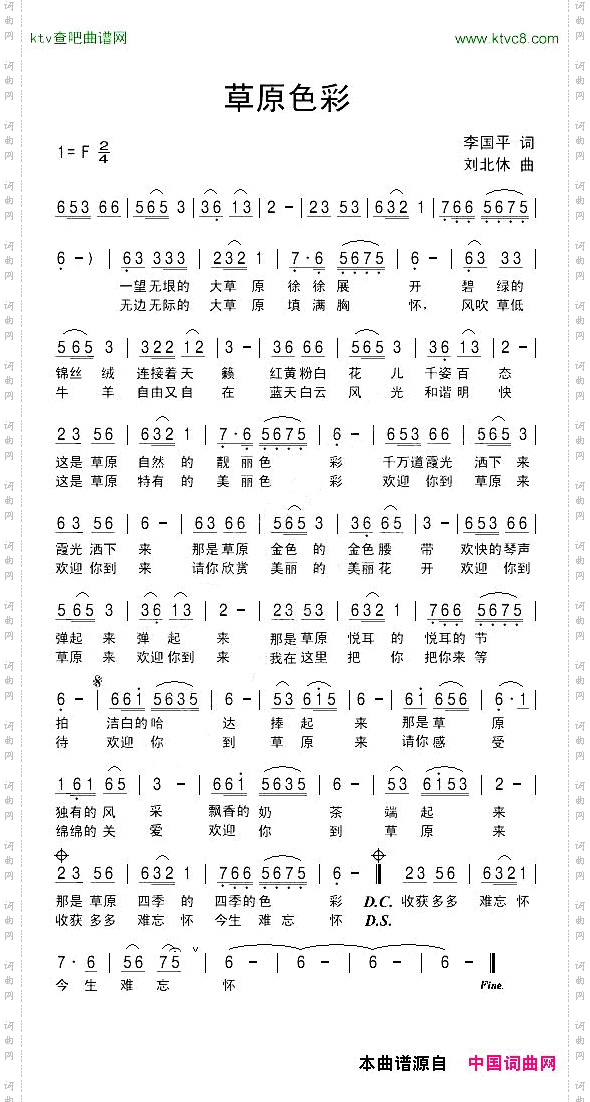 ktv查吧曲谱网 www.ktvc8.com
草原色彩
1=F 2/4
李国平 词
刘北休 曲
653 66 | 565 3 | 36 13 | 2 - | 23 53 | 632 1 | 766 5675 |
6 - ) | 63 333 | 232 1 | 7·6 5675 | 6 - | 63 33 |
一望无垠的 大草 原 徐徐展 开 碧绿的
无边无际的 大草 原 填满胸 怀， 风吹草低
565 3 | 322 12 | 3 - | 36 66 | 565 3 | 36 13 | 2 - |
锦丝 绒 连接着天 籁 红黄粉白 花 儿 千姿百 态
牛 羊 自由又自 在 蓝天白云 风 光 和谐明 快
23 56 | 632 1 | 7·6 5675 | 6 - | 653 66 | 565 3 |
这是草原 自然 的 靓丽色 彩 千万道霞光 洒下 来
这是草原 特有 的 美丽色 彩 欢迎你到 草原 来
63 56 | 6 - | 63 66 | 565 3 | 36 65 | 3 - | 63 66 |
霞光洒下 来 那是草原 金色 的 金色腰 带 欢快的琴声
欢迎你到 来 请你欣赏 美丽 的 美丽花 开 欢迎你到
565 3 | 36 13 | 2 - | 23 53 | 632 1 | 766 5675 |
弹起 来 弹 起 来 那是草原 悦耳 的 悦耳的节
草原 来 欢迎你到 来 我在这里 把 你 把你来等
6 - | 661 5635 | 6 - | 53 615 | 6 - | 61 656 | 6·1 |
拍 洁白的哈 达 捧起 来 那是草 原
待 欢迎你 到 草原 来 请你感 受
161 65 | 3 - | 661 5635 | 6 - | 53 6153 | 2 - |
独有的风 采 飘香的奶 茶 端起 来
绵绵的关 爱 欢迎你 到 草原 来
23 56 | 632 1 | 766 5675 | 6 - | 23 56 | 6321 |
那是草原 四季 的 四季的色 彩 D.C. 收获多多 难忘怀
收获多多 难忘怀 今生难忘 怀 D.S.
7·6 | 56 75 | 6 - | 6 - | 6 - | 6 - |
今生 难 忘 怀 Fine.
本曲谱源自 中国词曲网